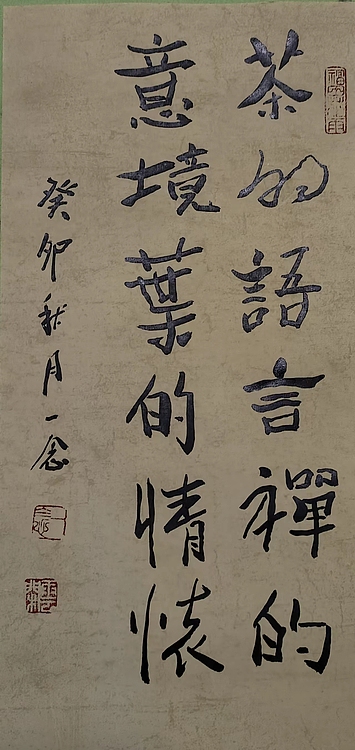 茶的語言禪的
意境葉的情懷
癸卯秋月一念